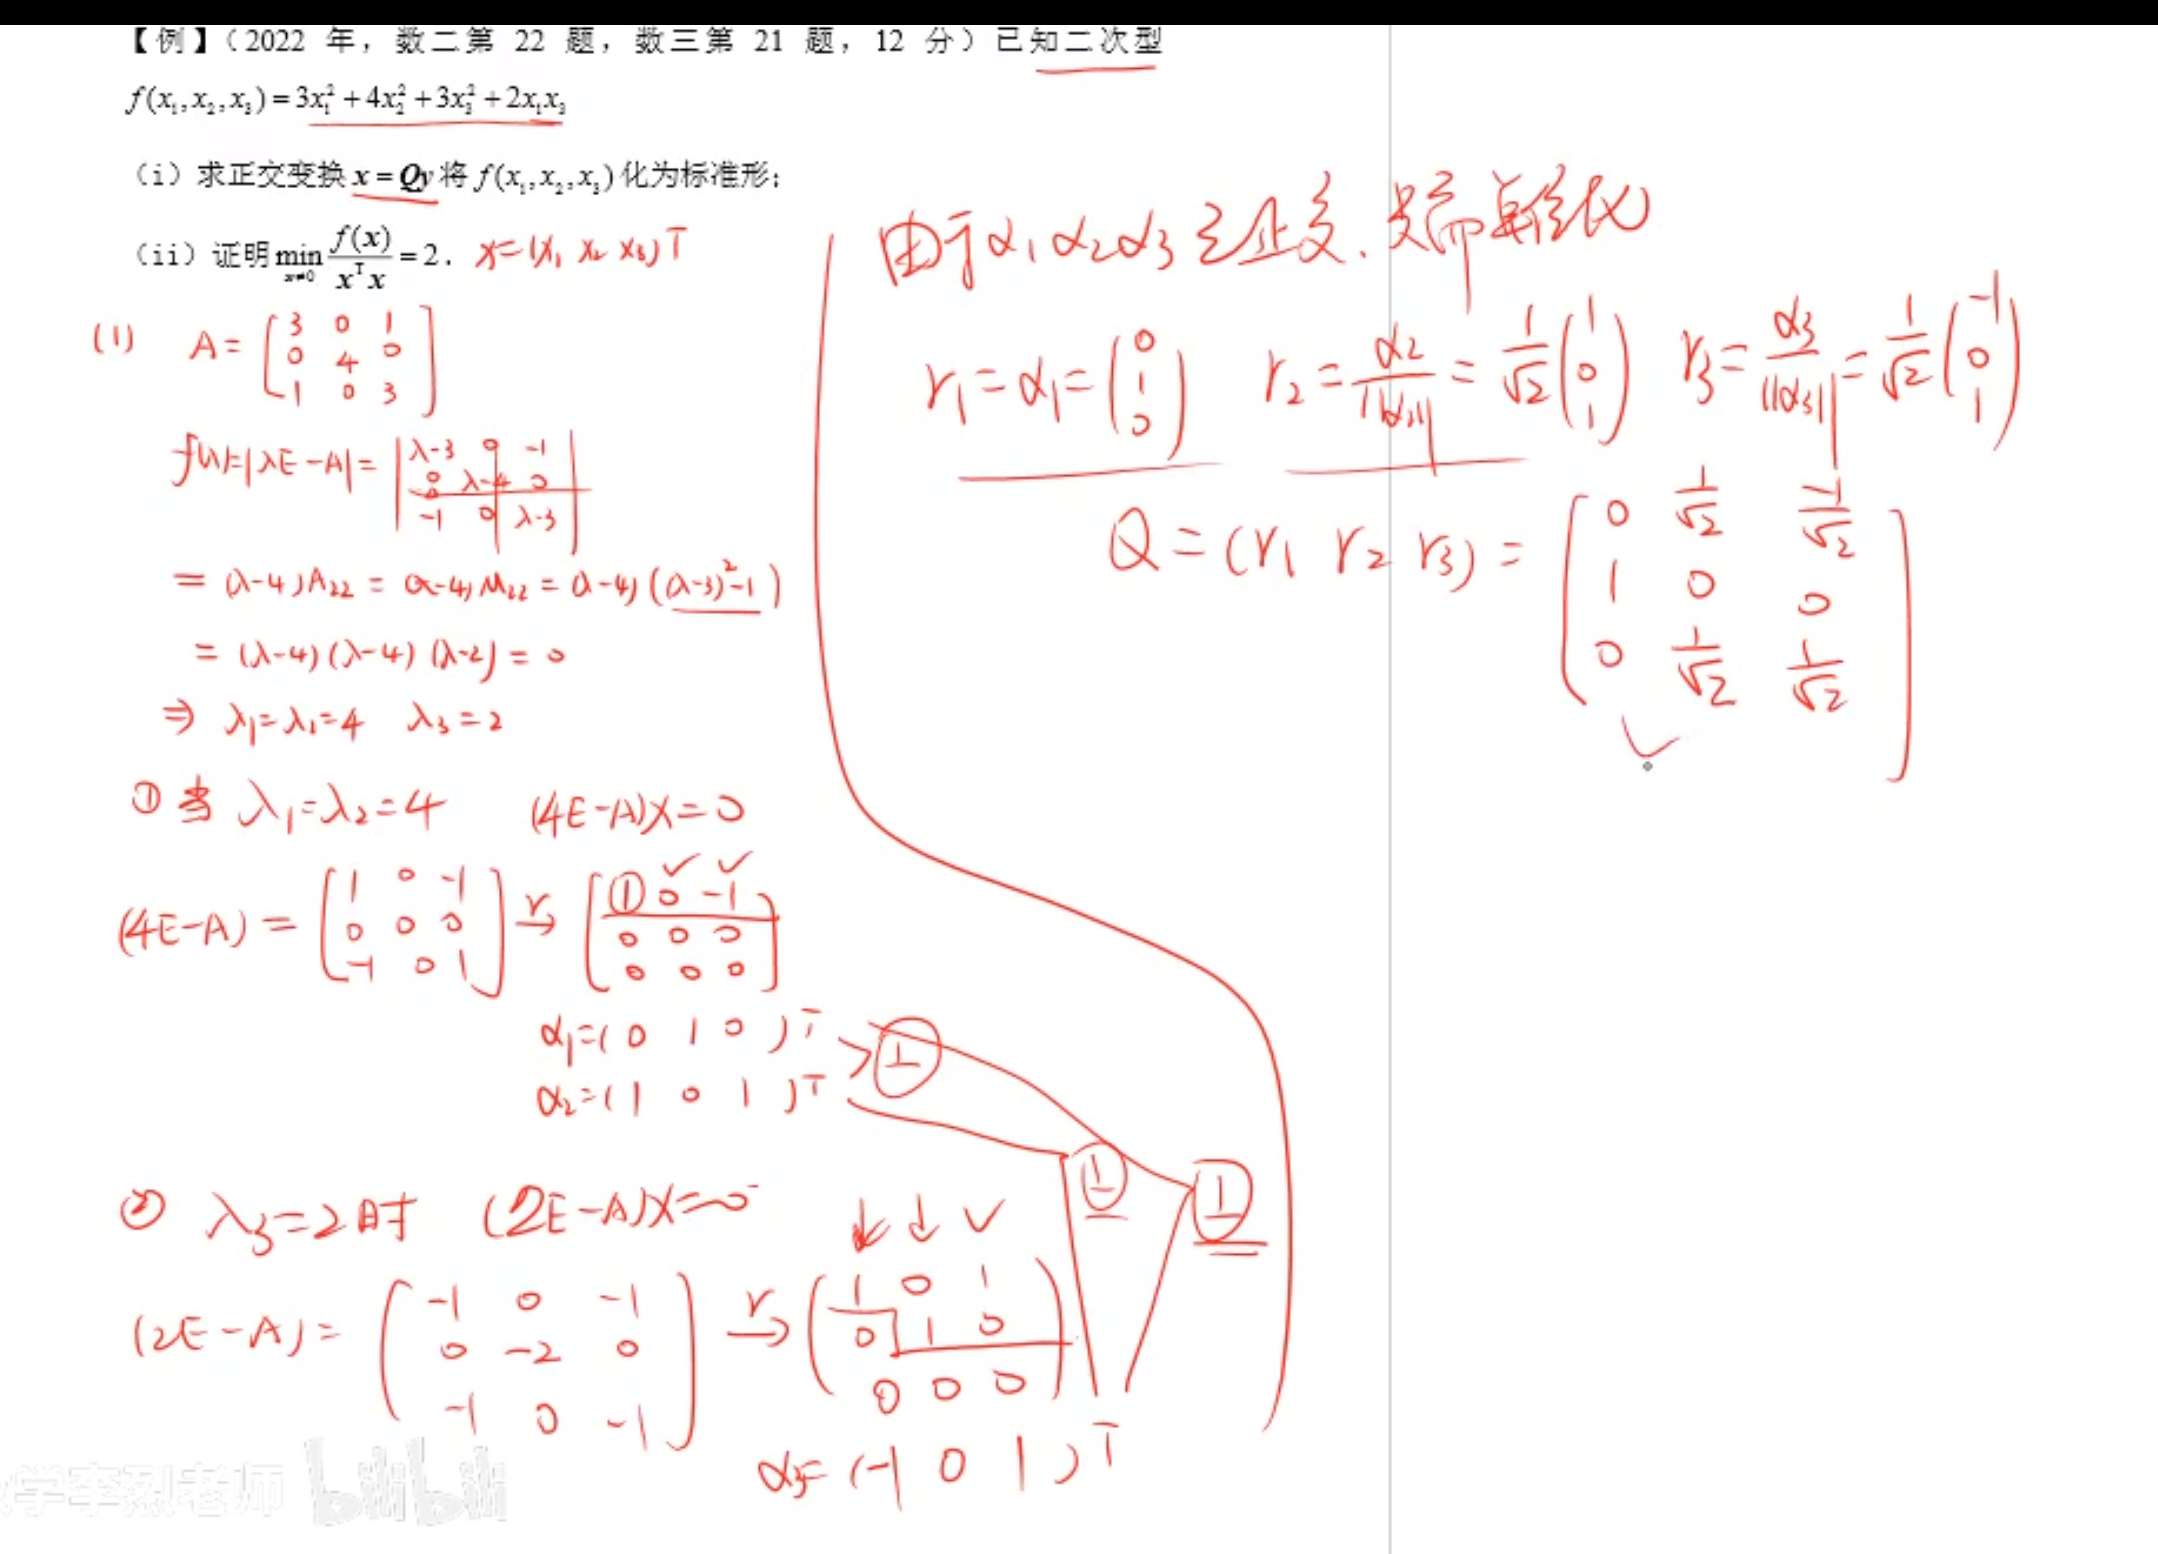 【例】(2022 年，数二第 22 题，数三第 21 题，12 分)已知二次型
f(x₁,x₂,x₃)=3x₁²+4x₂²+3x₃²+2x₁x₃
(i) 求正交变换 x=Qy 将 f(x₁,x₂,x₃) 化为标准形;
(ii) 证明 min_{x≠0} f(x)/(xᵀx) = 2. x=(x₁ x₂ x₃)ᵀ
(1) A= [3 0 1; 0 4 0; 1 0 3]
f(λ)=|λE-A|= |λ-3 0 -1; 0 λ-4 0; -1 0 λ-3|
= (λ-4)A₂₂ = (λ-4)M₂₂ = (λ-4)((λ-3)²-1)
= (λ-4)(λ-4)(λ-2) = 0
⇒ λ₁=λ₂=4 λ₃=2
① 当 λ₁=λ₂=4 (4E-A)X=0
(4E-A) = [1 0 -1; 0 0 0; -1 0 1] r→ [① 0 -1; 0 0 0; 0 0 0]
α₁=(0 1 0)ᵀ
α₂=(1 0 1)ᵀ
⊥
⊥ ⊥
② λ₃=2时 (2E-A)X=0
(2E-A)= (-1 0 -1; 0 -2 0; -1 0 -1) r→ (1 0 1; 0 1 0; 0 0 0)
α₃=(-1 0 1)ᵀ
由于α₁α₂α₃已正交，只需单位化
r₁=α₁=(0 1 0) r₂=α₂/||α₂||=1/√2 (1 0 1) r₃=α₃/||α₃||=1/√2 (-1 0 1)
Q=(r₁ r₂ r₃)= [0 1/√2 -1/√2; 1 0 0; 0 1/√2 1/√2]
学李烈老师 bilibili